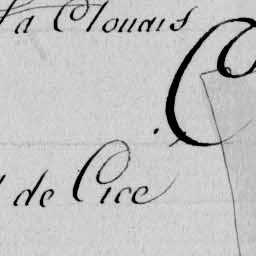 la Clouais
C
de Cice